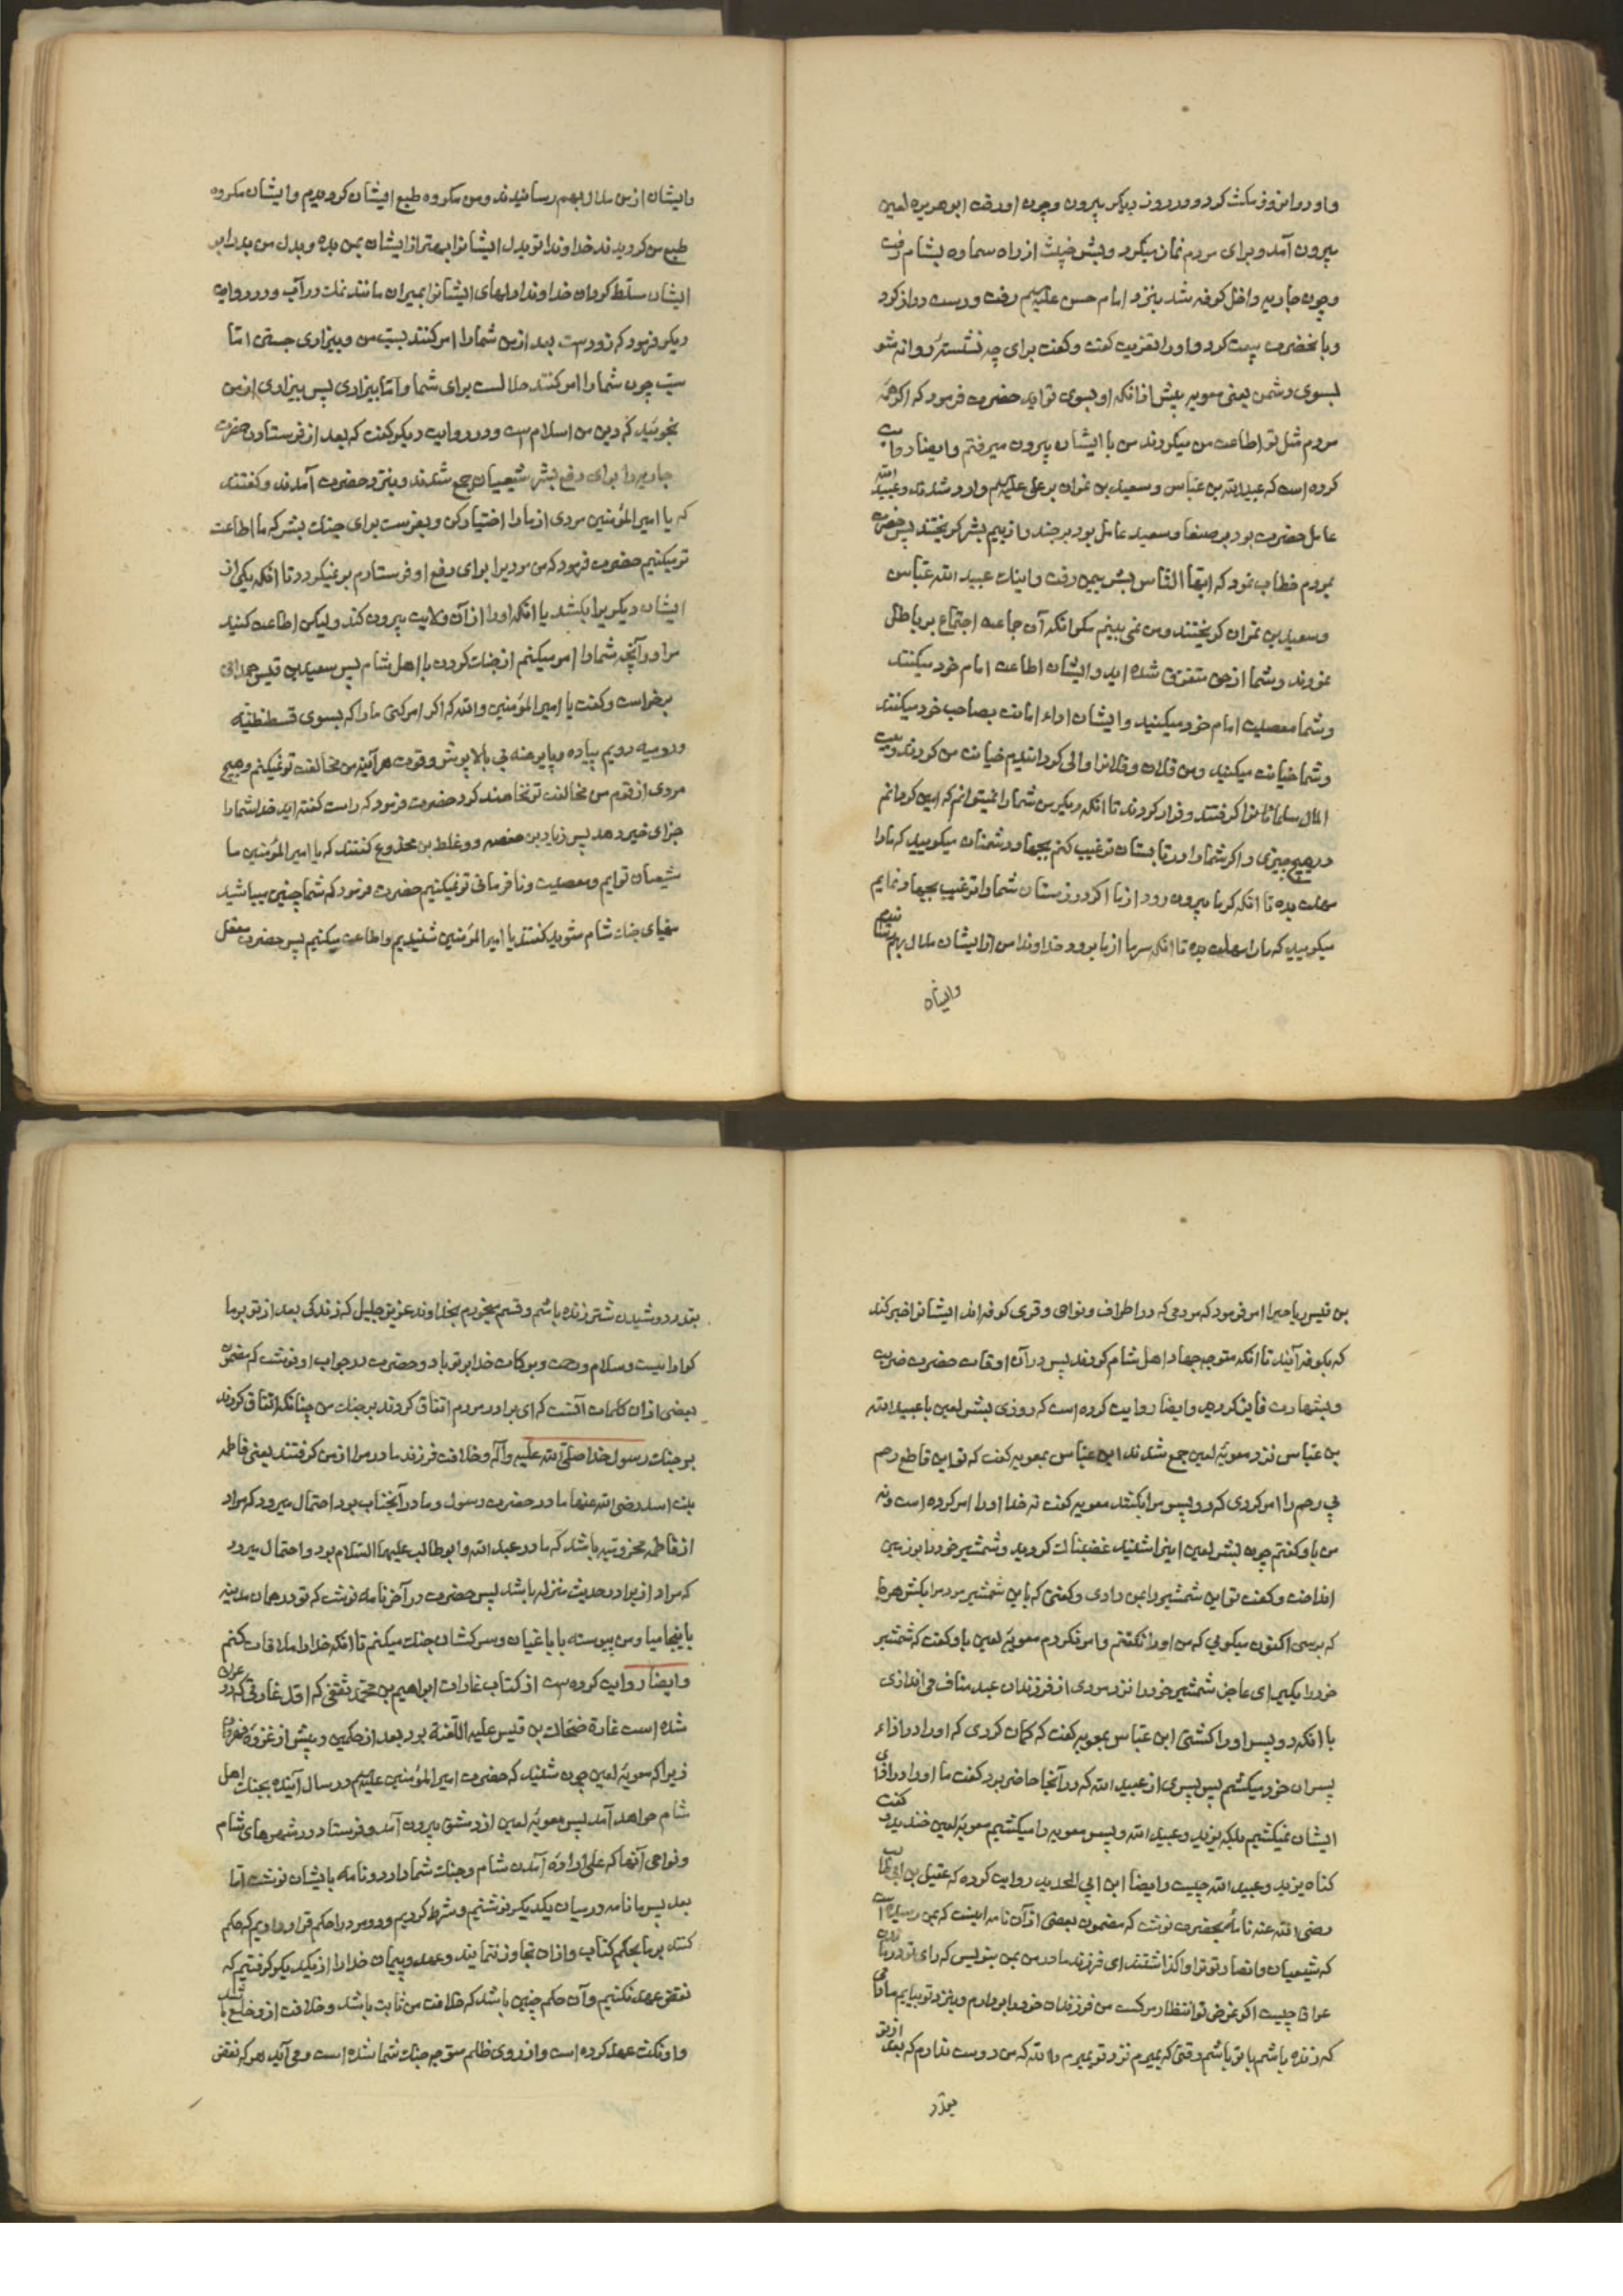 و او در انروز مکث کرد و در روز دیکر بیرون و چون او رفت ابو هریره لعین
بیرون آمد و برای مردم نماز میکرد و بشر خبیث از راه سماوه بشام رفت
و چون جاریه داخل کوفه شد بنزد امام حسن علیه السلم رفت و دست دراز کرد
و با نحضرت بیعت کرد و او را تعزیت کفت و کفت برای چه نشستۀ روانه شو
بسوی دشمن یعنی معویه پیش از انکه او بسوی تو اید حضرت فرمود که اکر همۀ
مردم مثل تو اطاعت من میکردند من با ایشان بیرون میرفتم و ایضا روایت
کرده است که عبید الله بن عباس و سعید بن نمران بر علی علیه السلم وارد شدند و عبید الله
عامل حضرت بود بر صنعا و سعید عامل بود بر جند و از بیم بشر کریختند پس حضرت
بمردم خطاب نمود که ایها الناس بشر بیمن رفت و اینک عبید الله عباس
و سعید بن نمران کریختند و من نمی بینم مکر انکه آن جاعت اجتماع بر باطل
نمودند و شما از حق متفرق شده اید و ایشان اطاعت امام خود میکنند
و شما معصیت امام خود میکنید و ایشان اداء امانت بصاحب خود میکنند
و شما خیانت میکنید و من فلان و فلانرا والی کردانیدم خیانت من کردند و بیت
المال مسلمانانرا کرفتند و فرار کردند تا انکه دیکر من شما را نمیتوانم که امین کردانم
در هیچ چیزی و اکر شما را در تابستان ترغیب کنم بجهاد دشمنان میکویید که ما را
مهلت بده تا انکه کرما بیرون رود از ما اکر در زمستان شما را ترغیب بجهاد نمایم
میکویید که ما را مهلت بده تا انکه سرما از ما برود خداوندا من از ایشان ملال بهم رسانیدم
و ایشان
و ایشان از من ملال بهم رسانیدند و من مکروه طبع ایشان کردیدم و ایشان مکروه
طبع من کردیدند خداوندا تو بدل ایشانرا بهتر از ایشان بمن بده و بدل من بد را بر
ایشان مسلط کردان خداوندا دلهای ایشانرا بمیران مانند نمک در آب و در روایت
دیکر فرمود که زود ست بعد از من شما را امر کنند بسبّ من و بیزاری جستن امّا
سبّ چون شما را امر کنند حلالست برای شما و امّا بیزاری پس بیزاری از من
نجوئید که دین من اسلام ست و در روایت دیکر کفت که بعد از فرستادن حضرت
جاریه را برای دفع بشر شیعیان جمع شدند و بنزد حضرت آمدند و کفتند
که یا امیر المؤمنین مردی از ما را اختیار کن و بفرست برای جنک بشر که ما اطاعت
تو میکنیم حضرت فرمود که من مردیرا برای دفع او فرستادم بر نمیکردد تا انکه یکی از
ایشان دیکریرا بکشد یا انکه او را از آن ولایت بیرون کند و لیکن اطاعت کنید
مرا در آنچه شما را امر میکنم از جنک کردن با اهل شام پس سعید بن قیس همدانی
برخواست و کفت یا امیر المؤمنین والله که اکر امر کنی ما را که بسوی قسطنطنیّه
و رومیه رویم پیاده و پا برهنه بی بالاپوش و قوت هر آینه من مخالفت تو نمیکنم و هیچ
مردی از قوم من مخالفت تو نخاهند کرد حضرت فرمود که راست کفته اید خدا شما را
جزای خیر دهد پس زیاد بن حفصه و وغلط بن مخدوع کفتند که یا امیر المؤمنین ما
شیعیان توایم و معصیت و نا فرمانی تو نمیکنیم حضرت فرمود که شما چنین میباشید
مهیای جنک شام شوید کفتند یا امیر المؤمنین شنیدیم و اطاعت میکنیم پس حضرت معقل
بن قیس ریاحیرا امر فرمود که مردمی که در اطراف و نواحی و قری کوفه اند ایشانرا خبر کند
که بکوفه آیند تا انکه متوجه جهاد اهل شام کردند پس در آن اوقات حضرت ضربت
و بشهادت فایز کردید و ایضا روایت کرده است که روزی بشر لعین با عبید الله
بن عبّاس نزد معویۀ لعین جمع شدند ابن عبّاس بمعویه کفت که تو این قاطع رحم
بی رحم را امر کردی که دو پسر مرا بکشد معویه کفت نه خدا او را امر کرده است و نه
من باو کفتم چون بشر لعین اینرا شنید غضبناک کردید و شمشیر خود را بر زمین
انداخت و کفت تو این شمشیر را بمن دادی و کفتی که باین شمشیر مردمرا بکش هر جا
که برسی اکنون میکوئی که من او را نکفتم و امر نکردم معویۀ لعین باو کفت که شمشیر
خود را بکیر ای عاجز شمشیر خود را نزد مردی از فرزندان عبد مناف می اندازی
با انکه دو پسر او را کشتی ابن عبّاس بمعویه کفت که کمان کردی که او را در اذاء
پسران خود میکشم پس پسری از عبید الله که در آنجا حاضر بود کفت ما او را در اذای
ایشان نمیکشیم بلکه یزید و عبید الله دو پسر معویه را میکشیم معویۀ لعین خندید و کفت
کناه یزید و عبید الله چیست و ایضا ابن ابی الحدید روایت کرده که عقیل بن ابی طالب
رضی الله عنه نامۀ بحضرت نوشت که مضمون بعضی از آن نامه اینست که بمن رسیده است
که شیعیان و انصار تو ترا واکذاشتند ای فرزند مادر من بمن بنویس که رای تو در ماندن
عراق چیست اکر غرض تو انتظار مرکست من فرزندان خود را بردارم و بنزد تو بیایم مادامی
که زنده باشم با تو باشم و وقتی که بمیرم نزد تو بمیرم والله که من دوست ندارم که بعد از تو
بقدر
بقدر دوشیدن شتر زنده باشم و قسم میخورم بخداوند عزیز جلیل که زندکی بعد از تو بر ما
کوارا نیست و سلام و رحمت و برکات خدا بر تو باد و حضرت در جواب او نوشت که مضمون
بعضی از ان کلمات آنست که ای برادر مردم اتفاق کردند بر جنک من چنانکه اتفاق کردند
بر جنک رسول خدا صلّی الله علیه و آله و خلافت فرزند مادر مرا از من کرفتند یعنی فاطمه
بنت اسد رضی الله عنها مادر حضرت رسول و مادر آنجناب بود احتمال میرود که مراد
از فاطمه مخزومیّه باشد که مادر عبد الله و ابو طالب علیهما السّلام بود و احتمال میرود
که مراد از برادر حدیث منزله باشد پس حضرت در آخر نامه نوشت که تو در همان مدینه
باینجا میا و من پیوسته با یاغیان و سرکشان جنک میکنم تا انکه خدا را ملاقات کنم
و ایضا روایت کرده ست از کتاب غارات ابراهیم بن محمّد ثقفی که اوّل غارتی که در عراق
شده است غارة ضحّاک بن قیس علیه اللّعنة بود بعد از حکمین و پیش از غزوۀ نهروان
زیرا که معویۀ لعین چون شنید که حضرت امیر المؤمنین علیه السلم در سال آینده بجنک اهل
شام خواهد آمد پس معویۀ لعین از دمشق بیرون آمد و فرستاد در شهرهای شام
و نواحی آنها که علی ارادۀ آمدن شام و جنک شما دارد و نامه بایشان نوشت امّا
بعد پس ما نامه در میان یکدیکر نوشتیم و شرط کردیم و دو مرد را حکم قرار دادیم که حکم
کنند بر ما بحکم کتاب و از ان تجاوز ننمایند و عهد و پیمان خدا را از یکدیکر کرفتیم که
نقض عهد نکنیم و آن حکم چنین باشد که خلافت من ثابت باشد و خلافت از و خلع باشد
و او نکث عهد کرده است و از روی ظلم متوجه جنک شما شده است و می آید هر که نقض